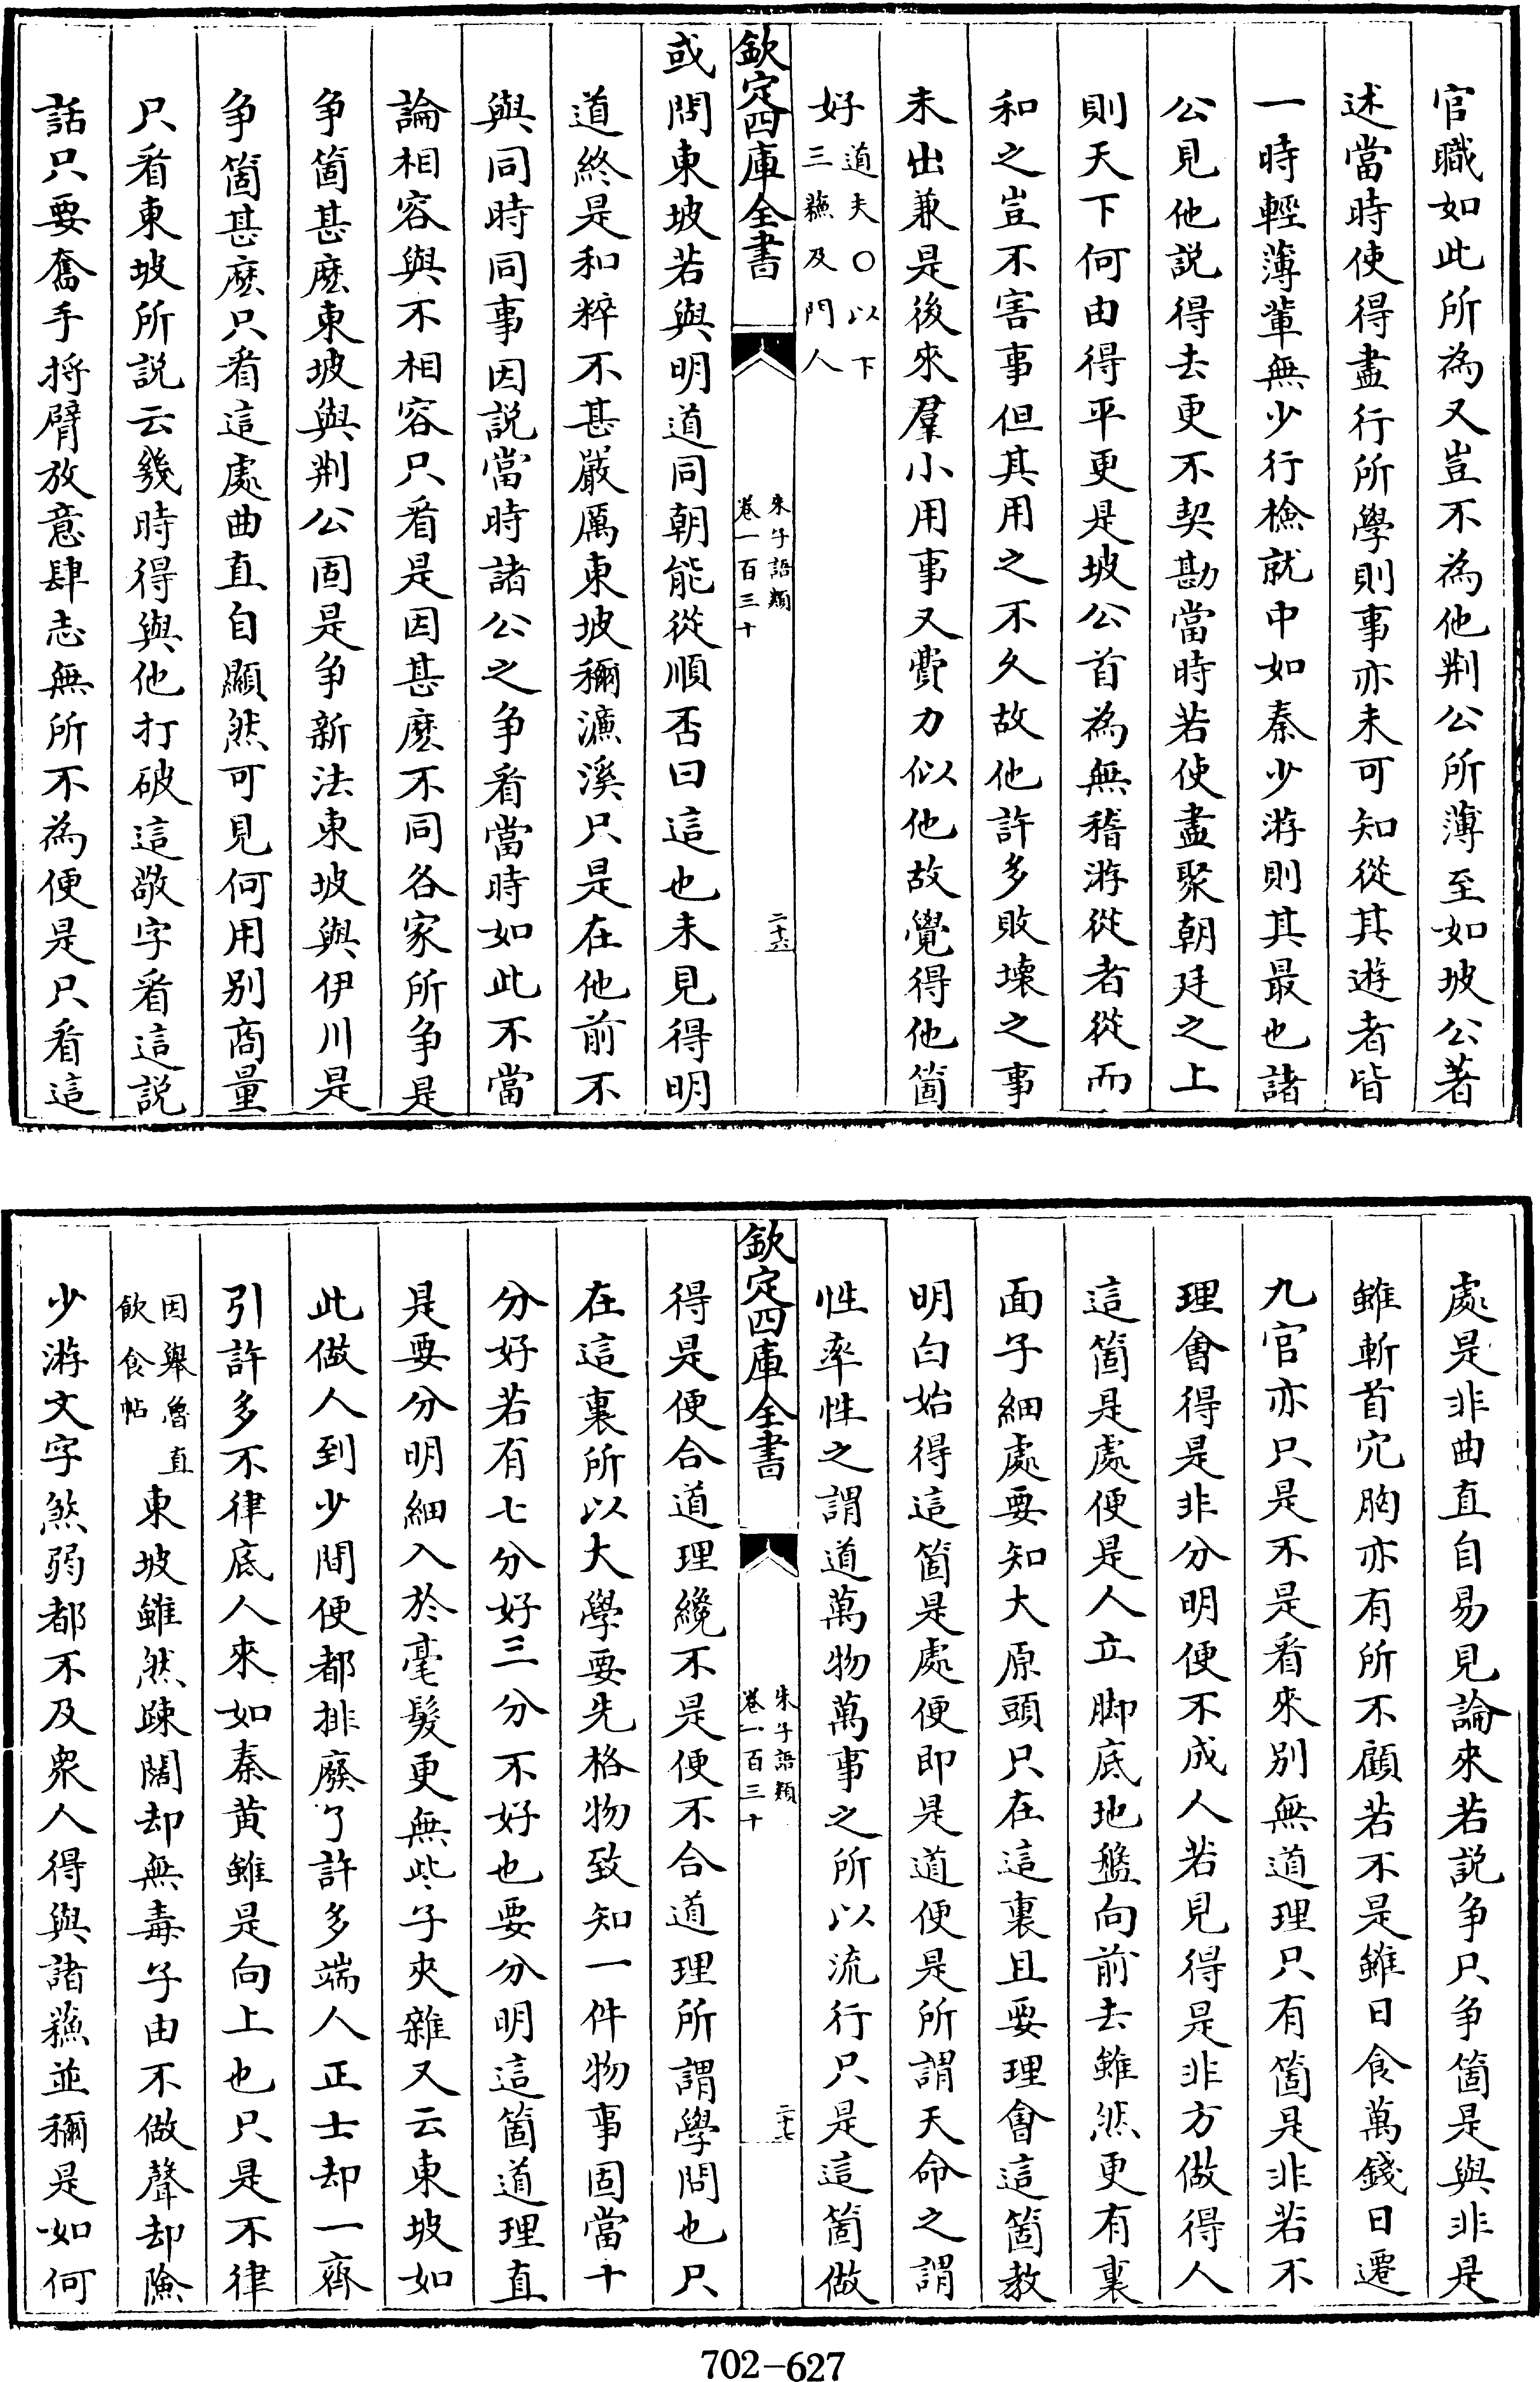 官職如此所為又豈不為他荆公所薄至如坡公著
述當時使得盡行所學則事亦未可知從其遊者皆
一時輕薄輩無少行檢就中如秦少游則其最也諸
公見他説得去更不契勘當時若使盡聚朝廷之上
則天下何由得平更是坡公首為無稽游從者從而
和之豈不害事但其用之不久故他許多敗壞之事
未出兼是後來羣小用事又費力似他故覺得他箇
好道夫〇以下三蘇及門人
欽定四庫全書
朱子語類
卷一百三十
二十六
或問東坡若與明道同朝能從順否曰這也未見得明
道終是和粹不甚嚴厲東坡稱濂溪只是在他前不
與同時同事因説當時諸公之争看當時如此不當
論相容與不相容只看是因甚麽不同各家所争是
争箇甚麽東坡與荆公固是争新法東坡與伊川是
争箇甚麽只看這處曲直自顯然可見何用别商量
只看東坡所説云幾時得與他打破這敬字看這説
話只要奮手捋臂放意肆志無所不為便是只看這
處是非曲直自易見論來若説争只争箇是與非是
雖斬首穴胸亦有所不顧若不是雖日食萬錢日遷
九官亦只是不是看來别無道理只有箇是非若不
理會得是非分明便不成人若見得是非方做得人
這箇是處便是人立脚底地盤向前去雖然更有裏
面子細處要知大原頭只在這裏且要理會這箇教
明白始得這箇是處便即是道便是所謂天命之謂
性率性之謂道萬物萬事之所以流行只是這箇做
欽定四庫全書
朱子語類
卷一百三十
二十七
得是便合道理纔不是便不合道理所謂學問也只
在這裏所以大學要先格物致知一件物事固當十
分好若有七分好三分不好也要分明這箇道理直
是要分明細入於毫髮更無些子夾雜又云東坡如
此做人到少間便都排廢了許多端人正士却一齊
引許多不律底人來如秦黄雖是向上也只是不律
因舉魯直飲食帖東坡雖然疎闊却無毒子由不做聲却險
少游文字煞弱都不及衆人得與諸蘇並稱是如何
702-627